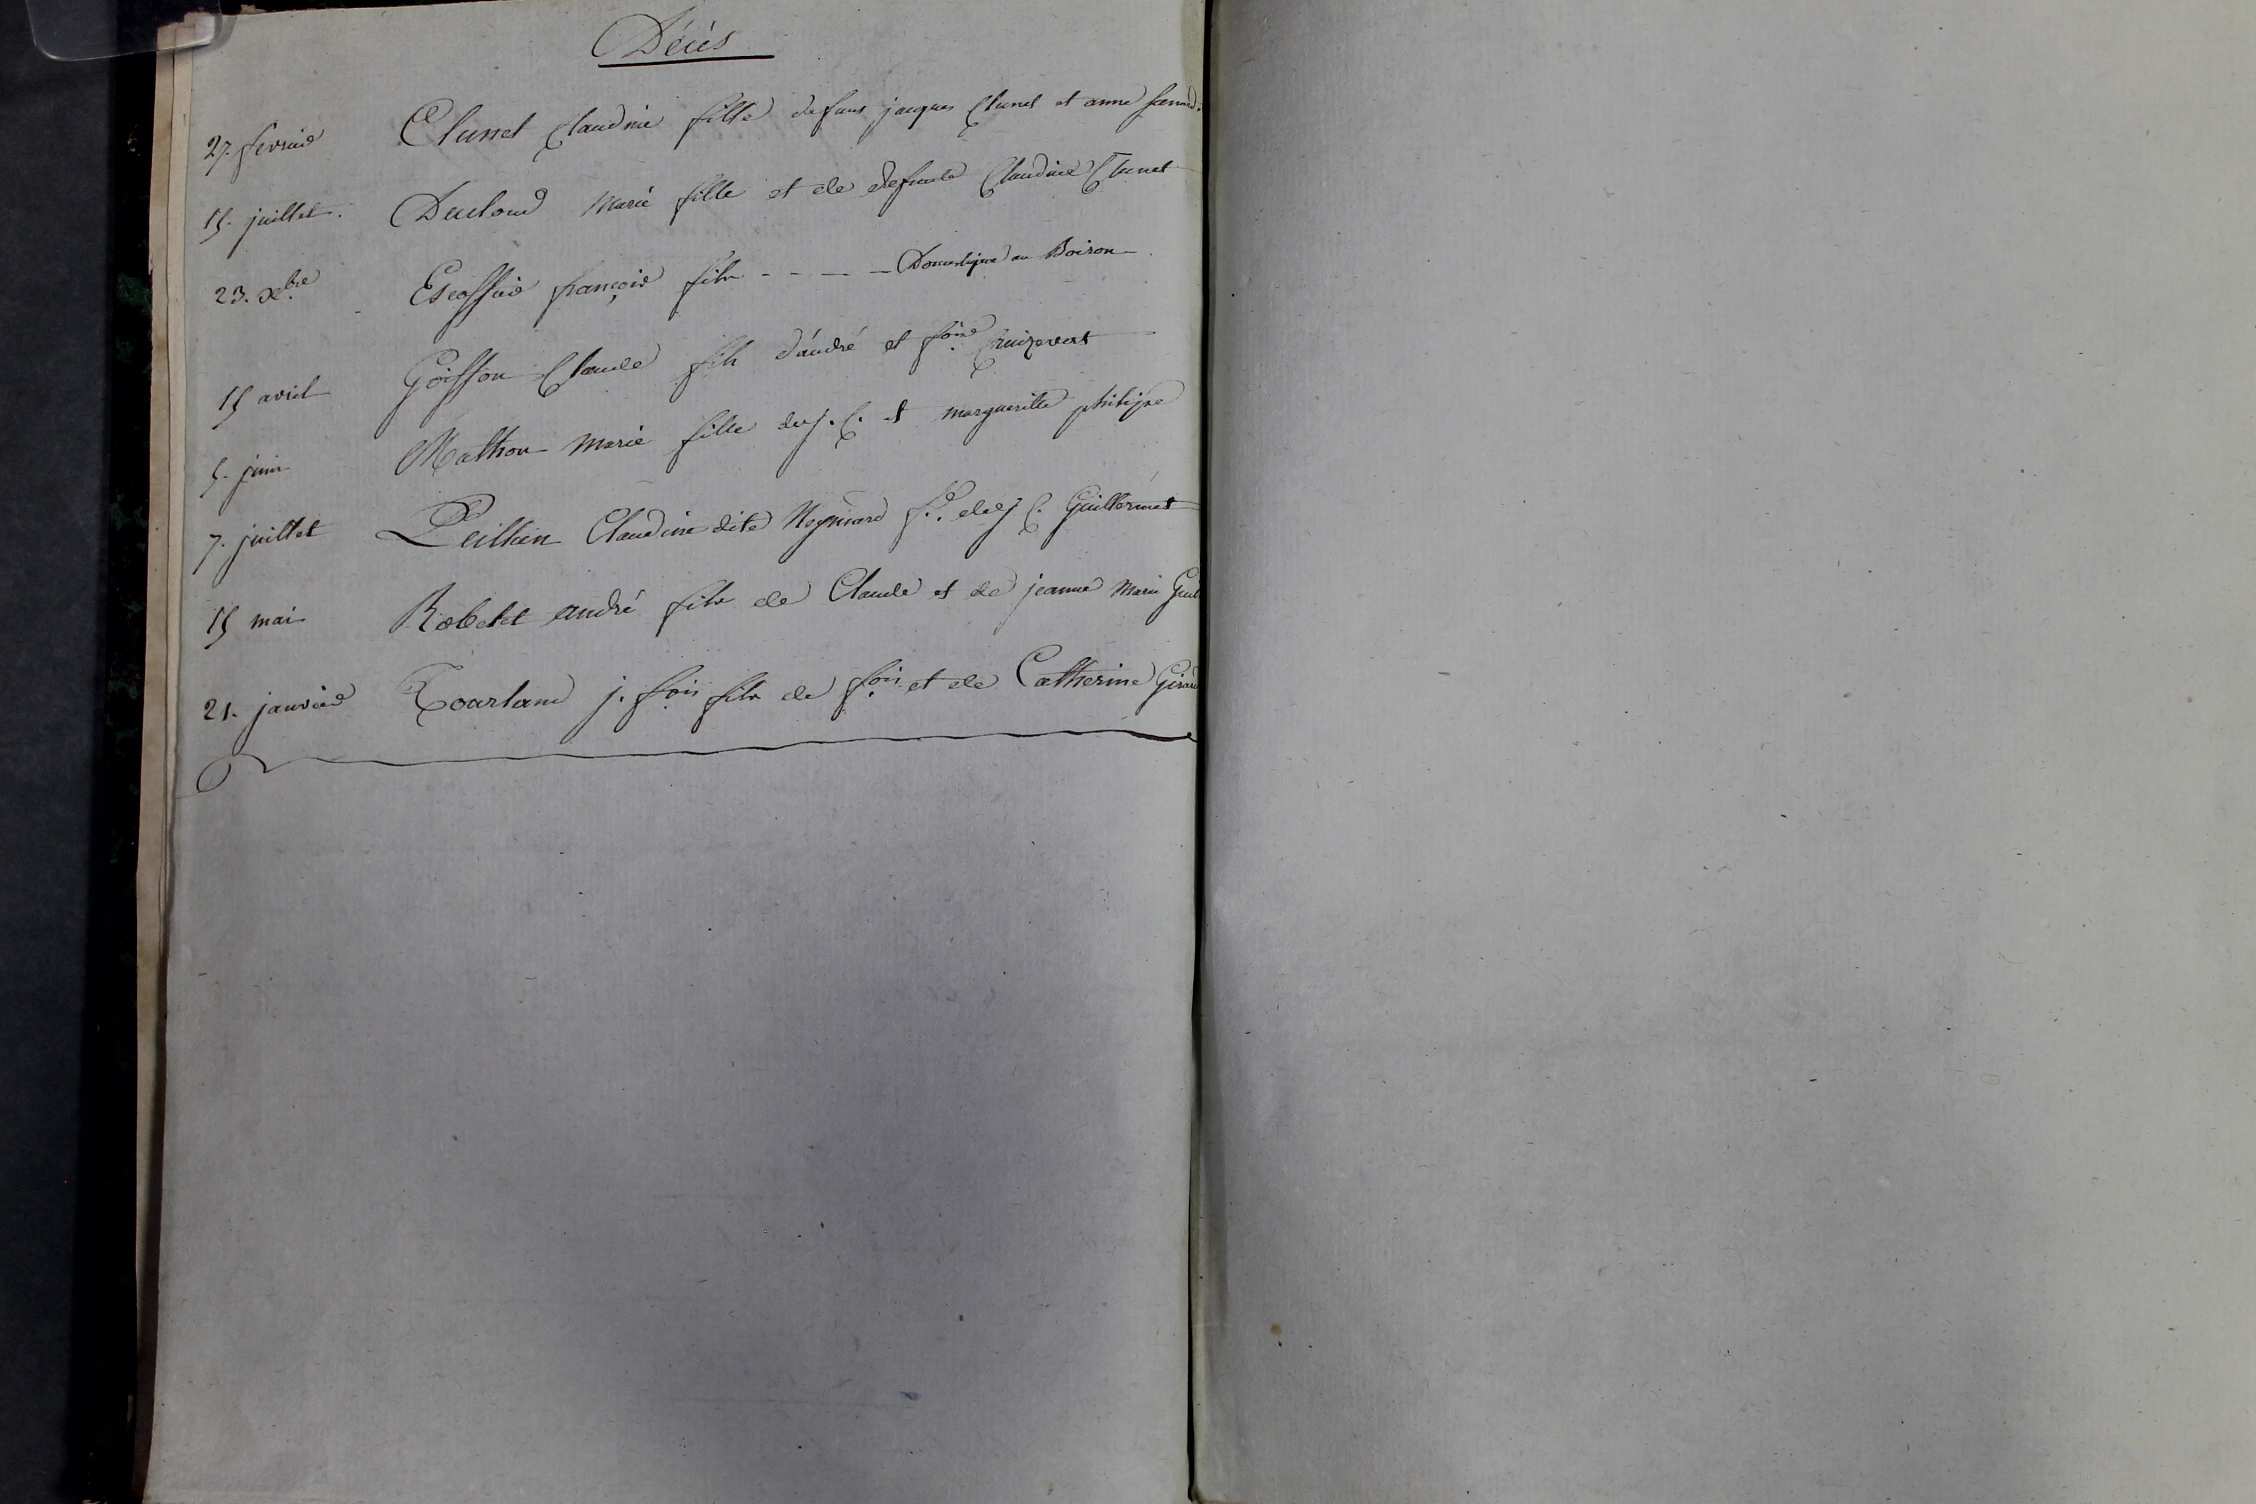 Décès
27. fevrier Clunet Claudine fille defunt jacques Clunet et anne
15. juillet. Ducloud Marie fille et de defunte Claudine Clunet
23. xbre Escoffier françois fils - - - - Domestique au Boiron
15 avril Goiffon Claude fils d'andré et foise Cruizevert
5. juin Mathon Marie fille de j. C. et margueritte philipe
7. juillet Peillien Claudine dite Neyniard fe. de j C. Guillermet
15 mai Robelet andré fils de Claude et de jeanne Marie Guil
21. janvier Toarland j. fois fils de fois et de Catherine Girard